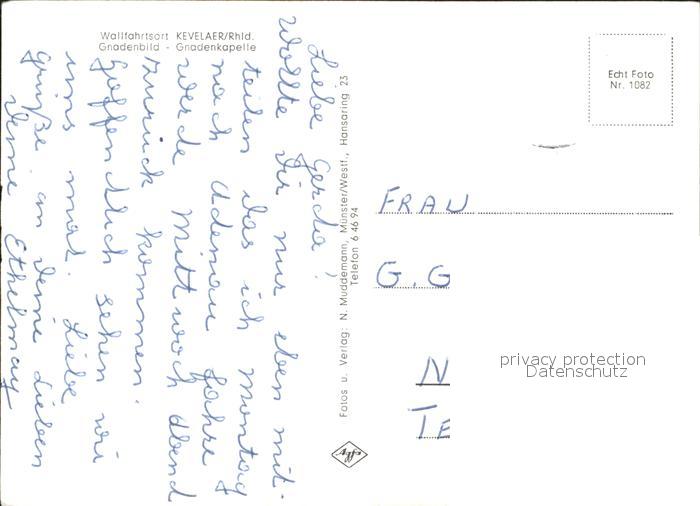 Wallfahrtsort KEVELAER/Rhld.
Gnadenbild - Gnadenkapelle
Liebe Gerda!
Wollte Dir nur eben mit-
teilen das ich Montag
nach Adenau fahre &
werde Mittwoch Abend
zurück kommen.
Hoffendlich sehen wir
uns mal. Liebe
Grüße an Deine Lieben
Deine Ethelmay
Fotos u. Verlag: N. Muddemann, Münster/Westf., Hansaring 23
Telefon 6 46 94
Agfa
Echt Foto
Nr. 1082
FRAU
G. G
N
TE
privacy protection
Datenschutz